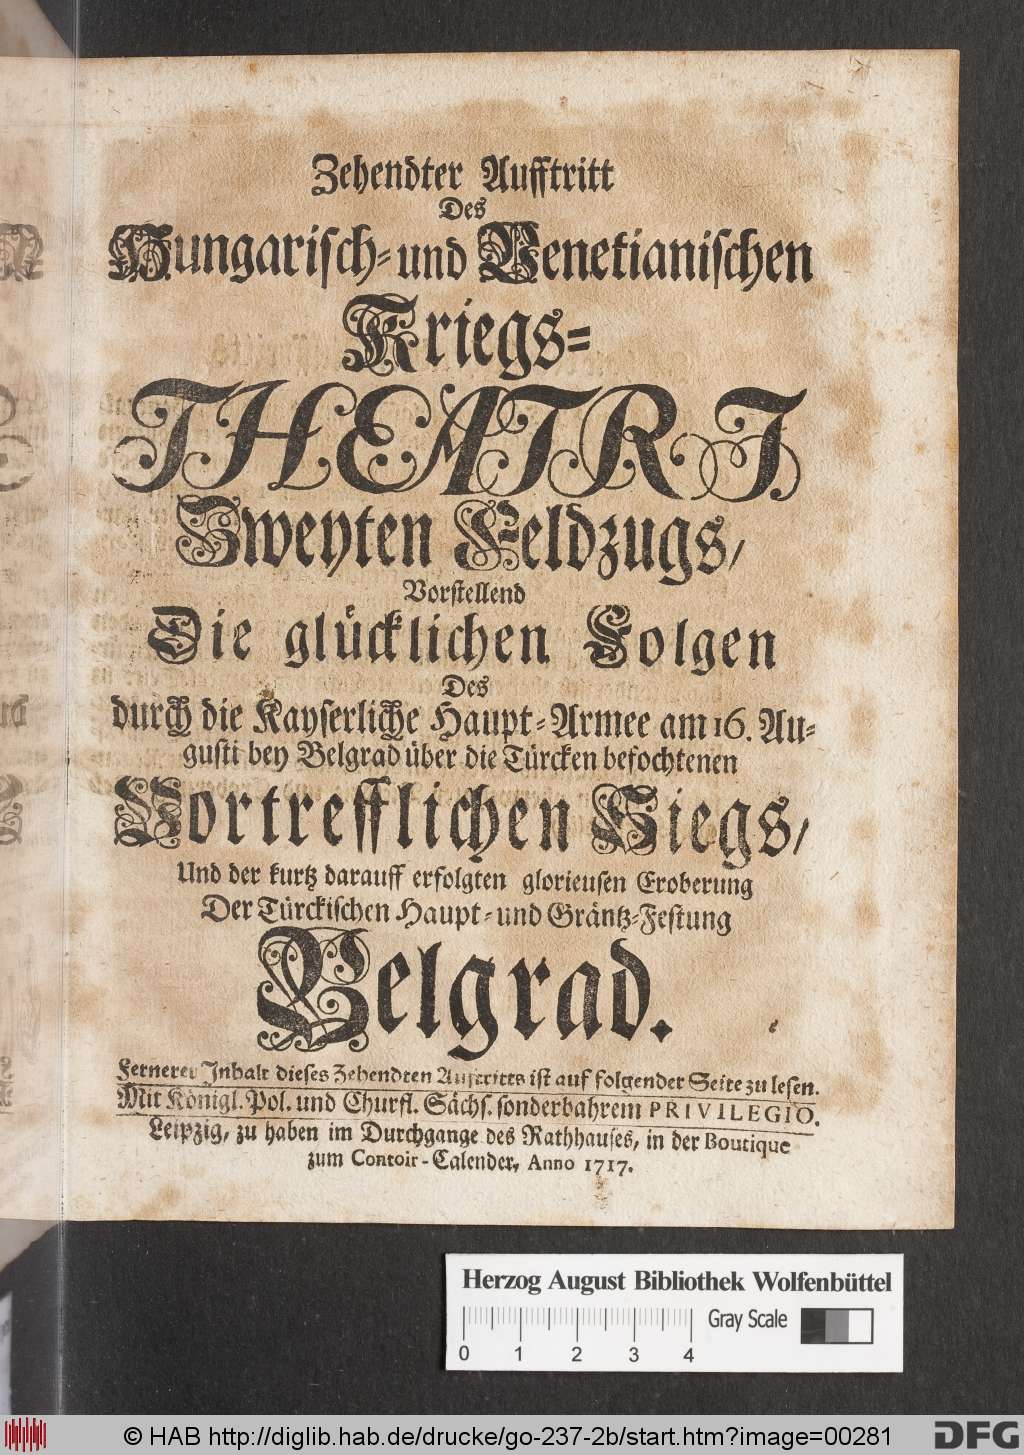 Zehendter Aufftritt
Des
Hungarisch- und Venetianischen
Kriegs-
THEATRI
Zweyten Feldzugs/
Vorstellend
Die glücklichen Folgen
Des
durch die Kayserliche Haupt-Armee am 16. Au-
gusti bey Belgrad über die Türcken befochtenen
Vortrefflichen Siegs/
Und der kurtz darauff erfolgten glorieusen Eroberung
Der Türckischen Haupt- und Gräntz-Festung
Belgrad.
Fernerer Inhalt dieses Zehendten Aufftritts ist auf folgender Seite zu lesen.
Mit Königl. Pol. und Churfl. Sächs. sonderbahrem PRIVILEGIO.
Leipzig, zu haben im Durchgange des Rathhauses, in der Boutique
zum Contoir-Calender, Anno 1717.
Herzog August Bibliothek Wolfenbüttel
Gray Scale
0 1 2 3 4
© HAB http://diglib.hab.de/drucke/go-237-2b/start.htm?image=00281
DFG